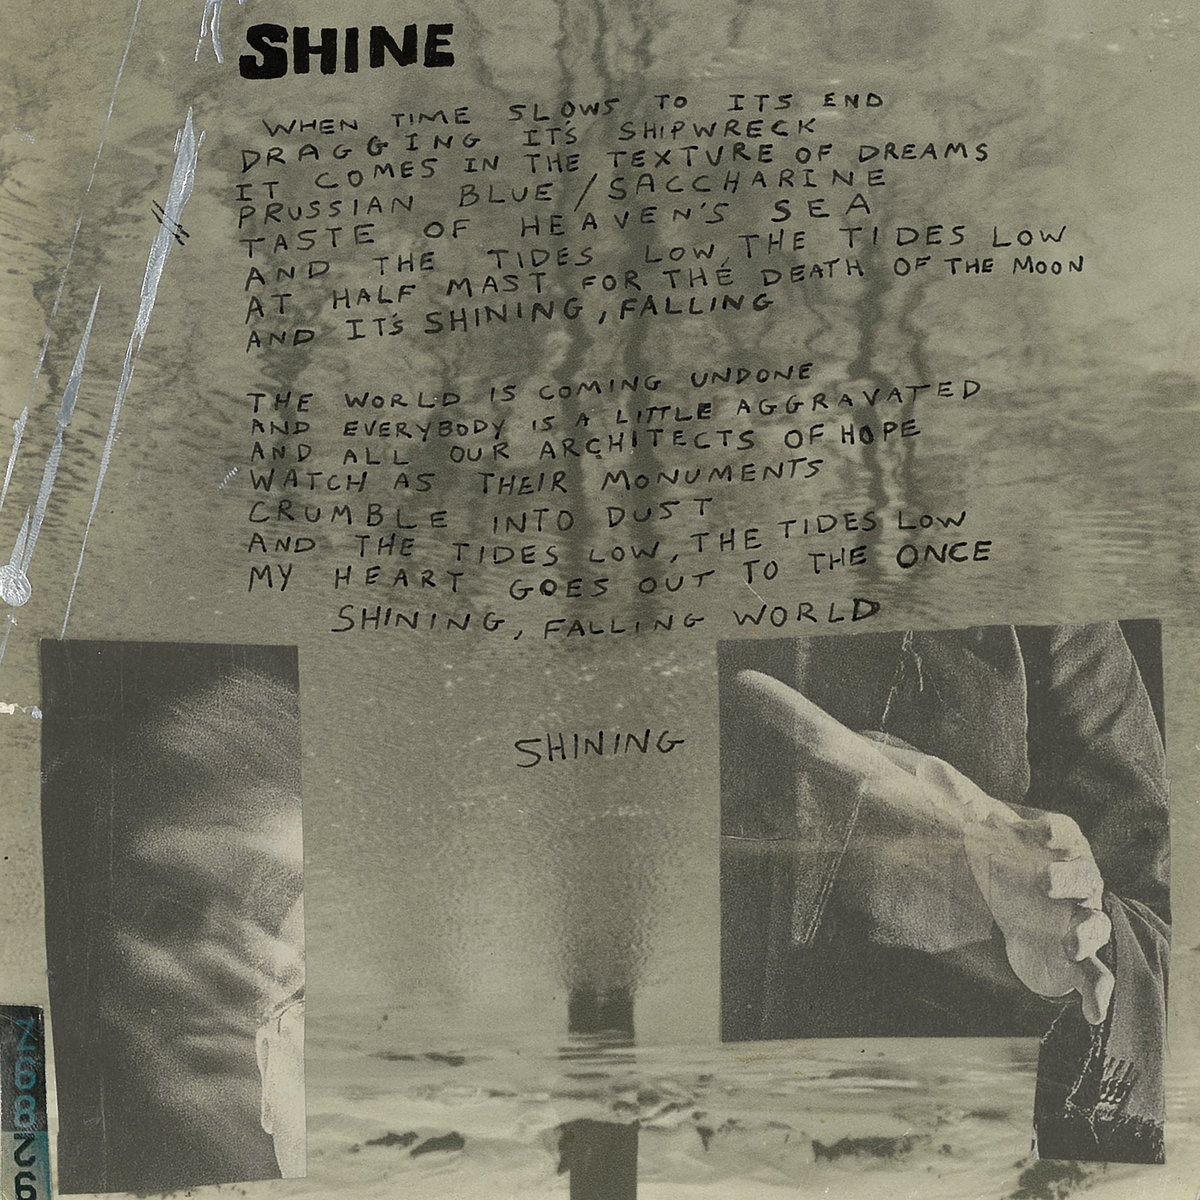 SHINE
WHEN TIME SLOWS TO ITS END
DRAGGING IT'S SHIPWRECK
IT COMES IN THE TEXTURE OF DREAMS
PRUSSIAN BLUE / SACCHARINE
TASTE OF HEAVEN'S SEA
AND THE TIDES LOW, THE TIDES LOW
AT HALF MAST FOR THE DEATH OF THE MOON
AND IT'S SHINING, FALLING
THE WORLD IS COMING UNDONE
AND EVERYBODY IS A LITTLE AGGRAVATED
AND ALL OUR ARCHITECTS OF HOPE
WATCH AS THEIR MONUMENTS
CRUMBLE INTO DUST
AND THE TIDES LOW, THE TIDES LOW
MY HEART GOES OUT TO THE ONCE
SHINING, FALLING WORLD
SHINING